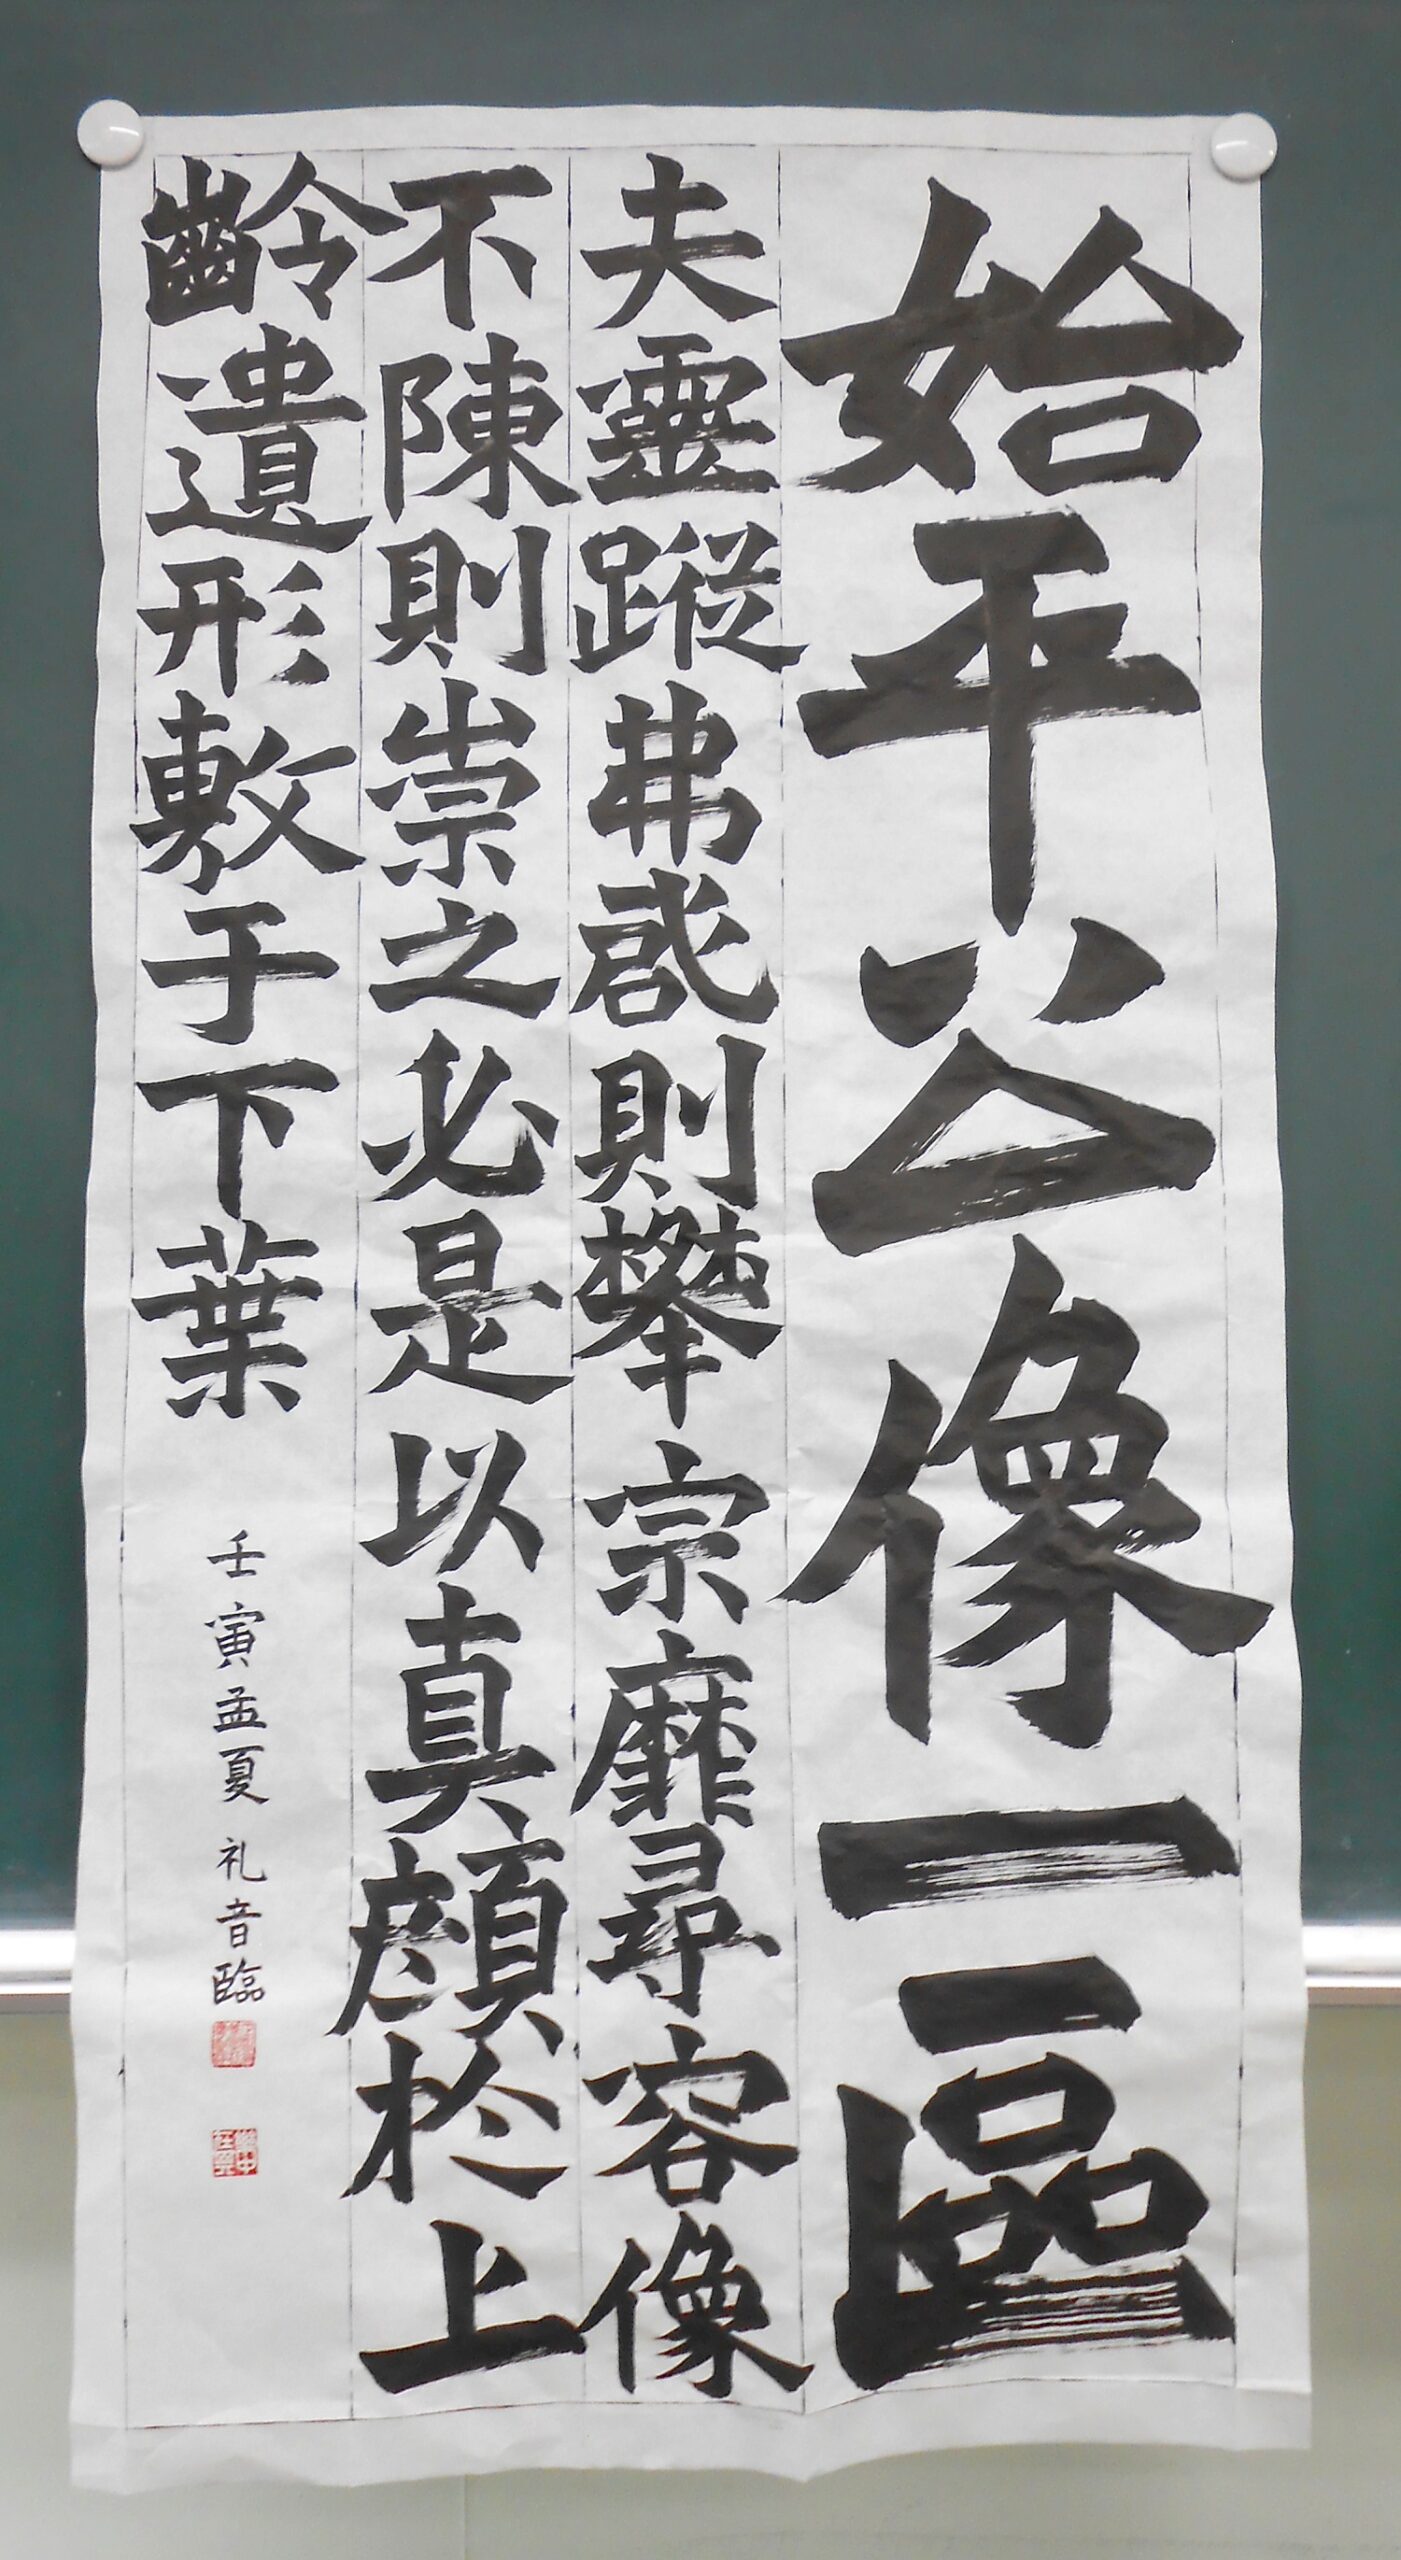 始平公像一區
夫靈蹤弗啓則攀宗靡尋容像
不陳則崇之必是以真顏於上
齡遺形敷于下葉
壬寅孟夏 礼音臨